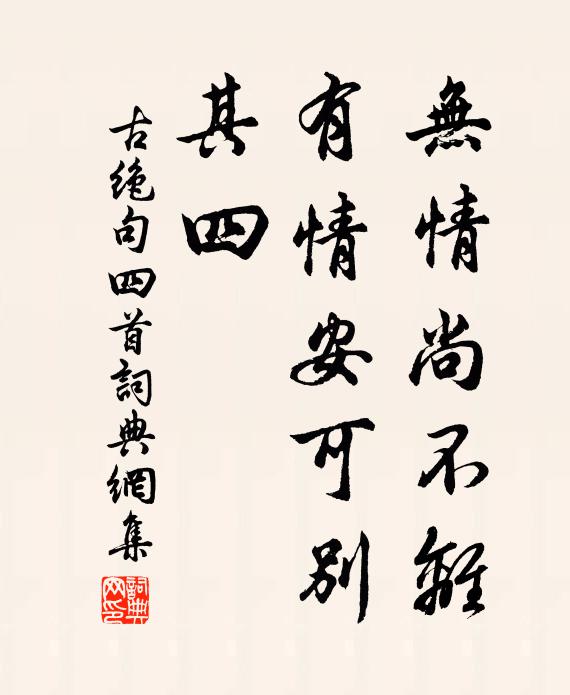 無情尚不離
有情安可別
其四
古絶句四首詞典網集
詞典網印